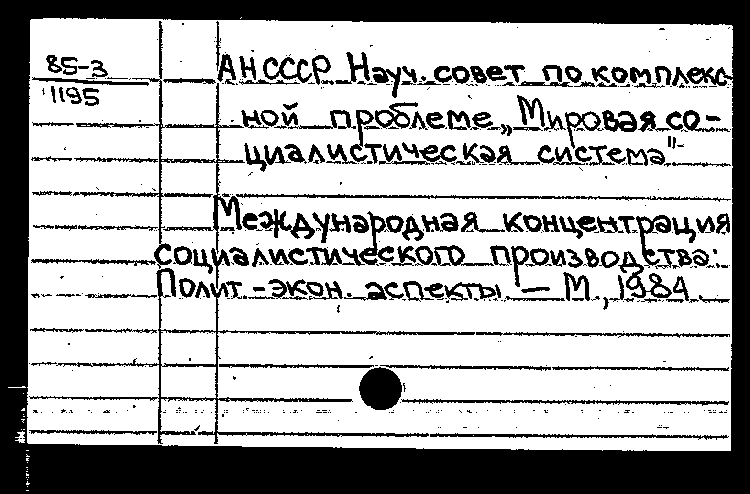 85-3
1195
АН СССР Науч. совет по комплекс-
ной проблеме „Мировая со-
циалистическая система"
Международная концентрация
социалистического производства:
Полит.-экон. аспекты. — М., 1984.